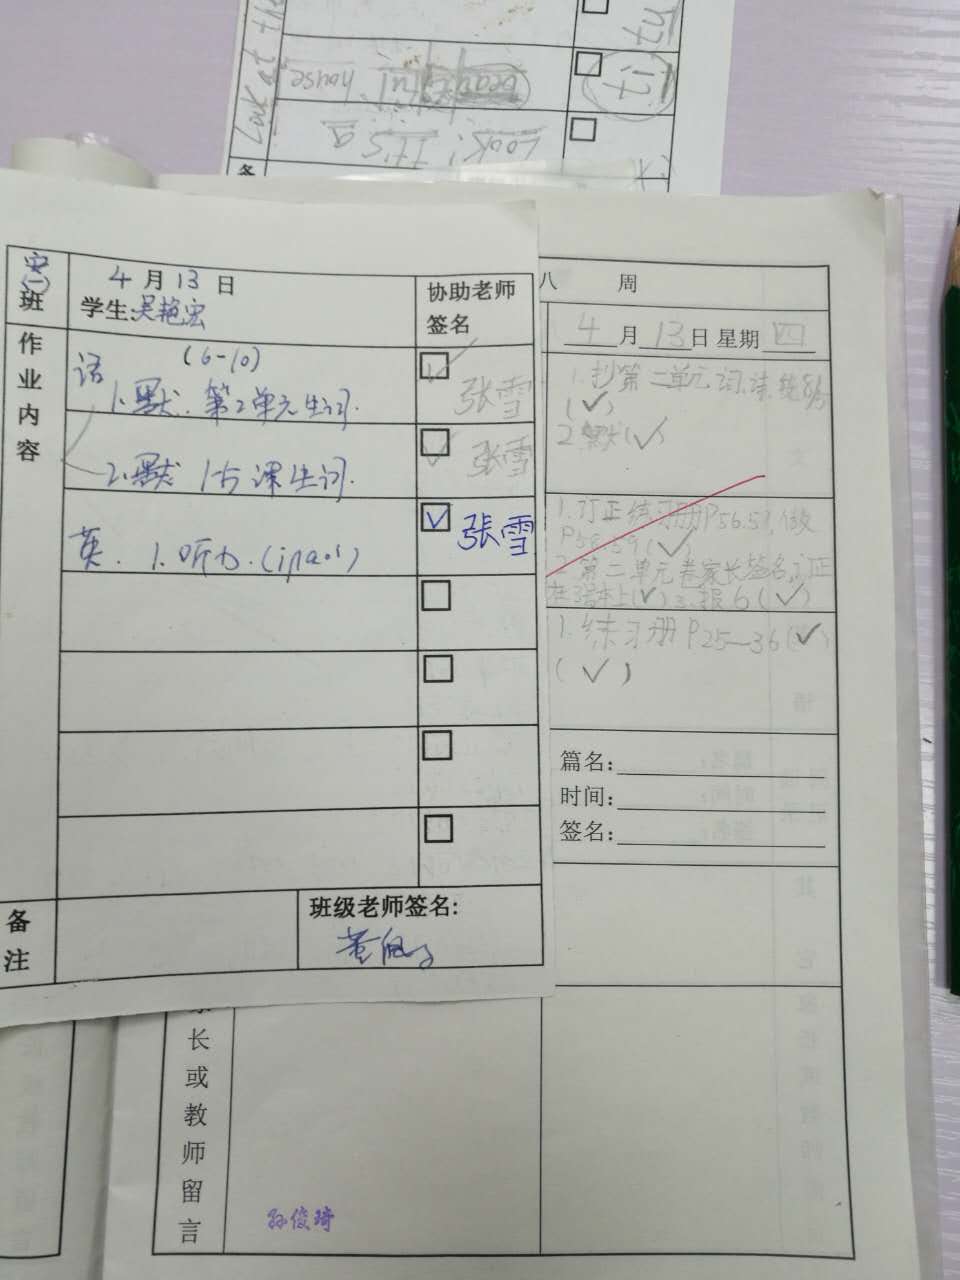 Look at the
house
Look! It's a
it
备
实
(一)
班
4月13日
学生:吴艳宏
协助老师
签名
作业内容
语
(6-10)
1.默.第2单元生词.
张雪
2.默 1-5课生词.
张雪
英. 1.听力.(ipad)
張雪
备注
班级老师签名:
八 周
4月13日 星期四
1.抄第二单元词语
(✓)
2.默(✓)
1.订正练习册P56.57,做
P58.59(✓)
2.第二单元卷家长签名,订正
在 本上(✓)3.报6(✓)
1.练习册P25—36(✓)
(✓)
篇名:
时间:
签名:
家长或教师留言
孙俊琦